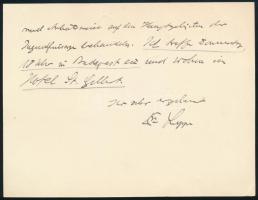 und Arbeitsweise auf den Hauptgebieten der
Jugendfürsorge behandeln. Ich treffe Donnerstag
Uhr in Budapest ein und wohne im
Hotel St. Gellert.
Ihr sehr ergebener